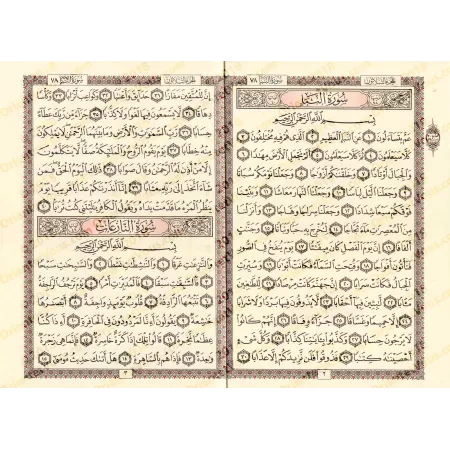 الجزء الثلاثون سورة النبأ ٧٨
سُورَةُ النَّبَإِ
بِسْمِ اللَّهِ الرَّحْمَٰنِ الرَّحِيمِ
عَمَّ يَتَسَاءَلُونَ ١ عَنِ النَّبَإِ الْعَظِيمِ ٢ الَّذِي هُمْ فِيهِ مُخْتَلِفُونَ ٣
كَلَّا سَيَعْلَمُونَ ٤ ثُمَّ كَلَّا سَيَعْلَمُونَ ٥ أَلَمْ نَجْعَلِ الْأَرْضَ مِهَادًا ٦
وَالْجِبَالَ أَوْتَادًا ٧ وَخَلَقْنَاكُمْ أَزْوَاجًا ٨ وَجَعَلْنَا نَوْمَكُمْ سُبَاتًا
٩ وَجَعَلْنَا اللَّيْلَ لِبَاسًا ١٠ وَجَعَلْنَا النَّهَارَ مَعَاشًا ١١ وَبَنَيْنَا
فَوْقَكُمْ سَبْعًا شِدَادًا ١٢ وَجَعَلْنَا سِرَاجًا وَهَّاجًا ١٣ وَأَنزَلْنَا
مِنَ الْمُعْصِرَاتِ مَاءً ثَجَّاجًا ١٤ لِّنُخْرِجَ بِهِ حَبًّا وَنَبَاتًا ١٥ وَجَنَّاتٍ
أَلْفَافًا ١٦ إِنَّ يَوْمَ الْفَصْلِ كَانَ مِيقَاتًا ١٧ يَوْمَ يُنفَخُ فِي الصُّورِ
فَتَأْتُونَ أَفْوَاجًا ١٨ وَفُتِحَتِ السَّمَاءُ فَكَانَتْ أَبْوَابًا ١٩ وَسُيِّرَتِ
الْجِبَالُ فَكَانَتْ سَرَابًا ٢٠ إِنَّ جَهَنَّمَ كَانَتْ مِرْصَادًا ٢١ لِّلطَّاغِينَ
مَآبًا ٢٢ لَّابِثِينَ فِيهَا أَحْقَابًا ٢٣ لَّا يَذُوقُونَ فِيهَا بَرْدًا وَلَا شَرَابًا
٢٤ إِلَّا حَمِيمًا وَغَسَّاقًا ٢٥ جَزَاءً وِفَاقًا ٢٦ إِنَّهُمْ كَانُوا
لَا يَرْجُونَ حِسَابًا ٢٧ وَكَذَّبُوا بِآيَاتِنَا كِذَّابًا ٢٨ وَكُلَّ شَيْءٍ
أَحْصَيْنَاهُ كِتَابًا ٢٩ فَذُوقُوا فَلَن نَّزِيدَكُمْ إِلَّا عَذَابًا ٣٠
٢
الجزء الثلاثون سورة النبأ ٧٨
إِنَّ لِلْمُتَّقِينَ مَفَازًا ٣١ حَدَائِقَ وَأَعْنَابًا ٣٢ وَكَوَاعِبَ أَتْرَابًا ٣٣ وَكَأْسًا
دِهَاقًا ٣٤ لَّا يَسْمَعُونَ فِيهَا لَغْوًا وَلَا كِذَّابًا ٣٥ جَزَاءً مِّن رَّبِّكَ عَطَاءً
حِسَابًا ٣٦ رَّبِّ السَّمَاوَاتِ وَالْأَرْضِ وَمَا بَيْنَهُمَا الرَّحْمَٰنِ لَا يَمْلِكُونَ
مِنْهُ خِطَابًا ٣٧ يَوْمَ يَقُومُ الرُّوحُ وَالْمَلَائِكَةُ صَفًّا لَّا يَتَكَلَّمُونَ
إِلَّا مَنْ أَذِنَ لَهُ الرَّحْمَٰنُ وَقَالَ صَوَابًا ٣٨ ذَٰلِكَ الْيَوْمُ الْحَقُّ فَمَن
شَاءَ اتَّخَذَ إِلَىٰ رَبِّهِ مَآبًا ٣٩ إِنَّا أَنذَرْنَاكُمْ عَذَابًا قَرِيبًا يَوْمَ
يَنظُرُ الْمَرْءُ مَا قَدَّمَتْ يَدَاهُ وَيَقُولُ الْكَافِرُ يَا لَيْتَنِي كُنتُ تُرَابًا ٤٠
سُورَةُ النَّازِعَاتِ
بِسْمِ اللَّهِ الرَّحْمَٰنِ الرَّحِيمِ
وَالنَّازِعَاتِ غَرْقًا ١ وَالنَّاشِطَاتِ نَشْطًا ٢ وَالسَّابِحَاتِ سَبْحًا
٣ فَالسَّابِقَاتِ سَبْقًا ٤ فَالْمُدَبِّرَاتِ أَمْرًا ٥ يَوْمَ تَرْجُفُ الرَّاجِفَةُ
٦ تَتْبَعُهَا الرَّادِفَةُ ٧ قُلُوبٌ يَوْمَئِذٍ وَاجِفَةٌ ٨ أَبْصَارُهَا
خَاشِعَةٌ ٩ يَقُولُونَ أَإِنَّا لَمَرْدُودُونَ فِي الْحَافِرَةِ ١٠ أَإِذَا كُنَّا
عِظَامًا نَّخِرَةً ١١ قَالُوا تِلْكَ إِذًا كَرَّةٌ خَاسِرَةٌ ١٢ فَإِنَّمَا هِيَ زَجْرَةٌ
وَاحِدَةٌ ١٣ فَإِذَا هُم بِالسَّاهِرَةِ ١٤ هَلْ أَتَاكَ حَدِيثُ مُوسَىٰ ١٥
٣